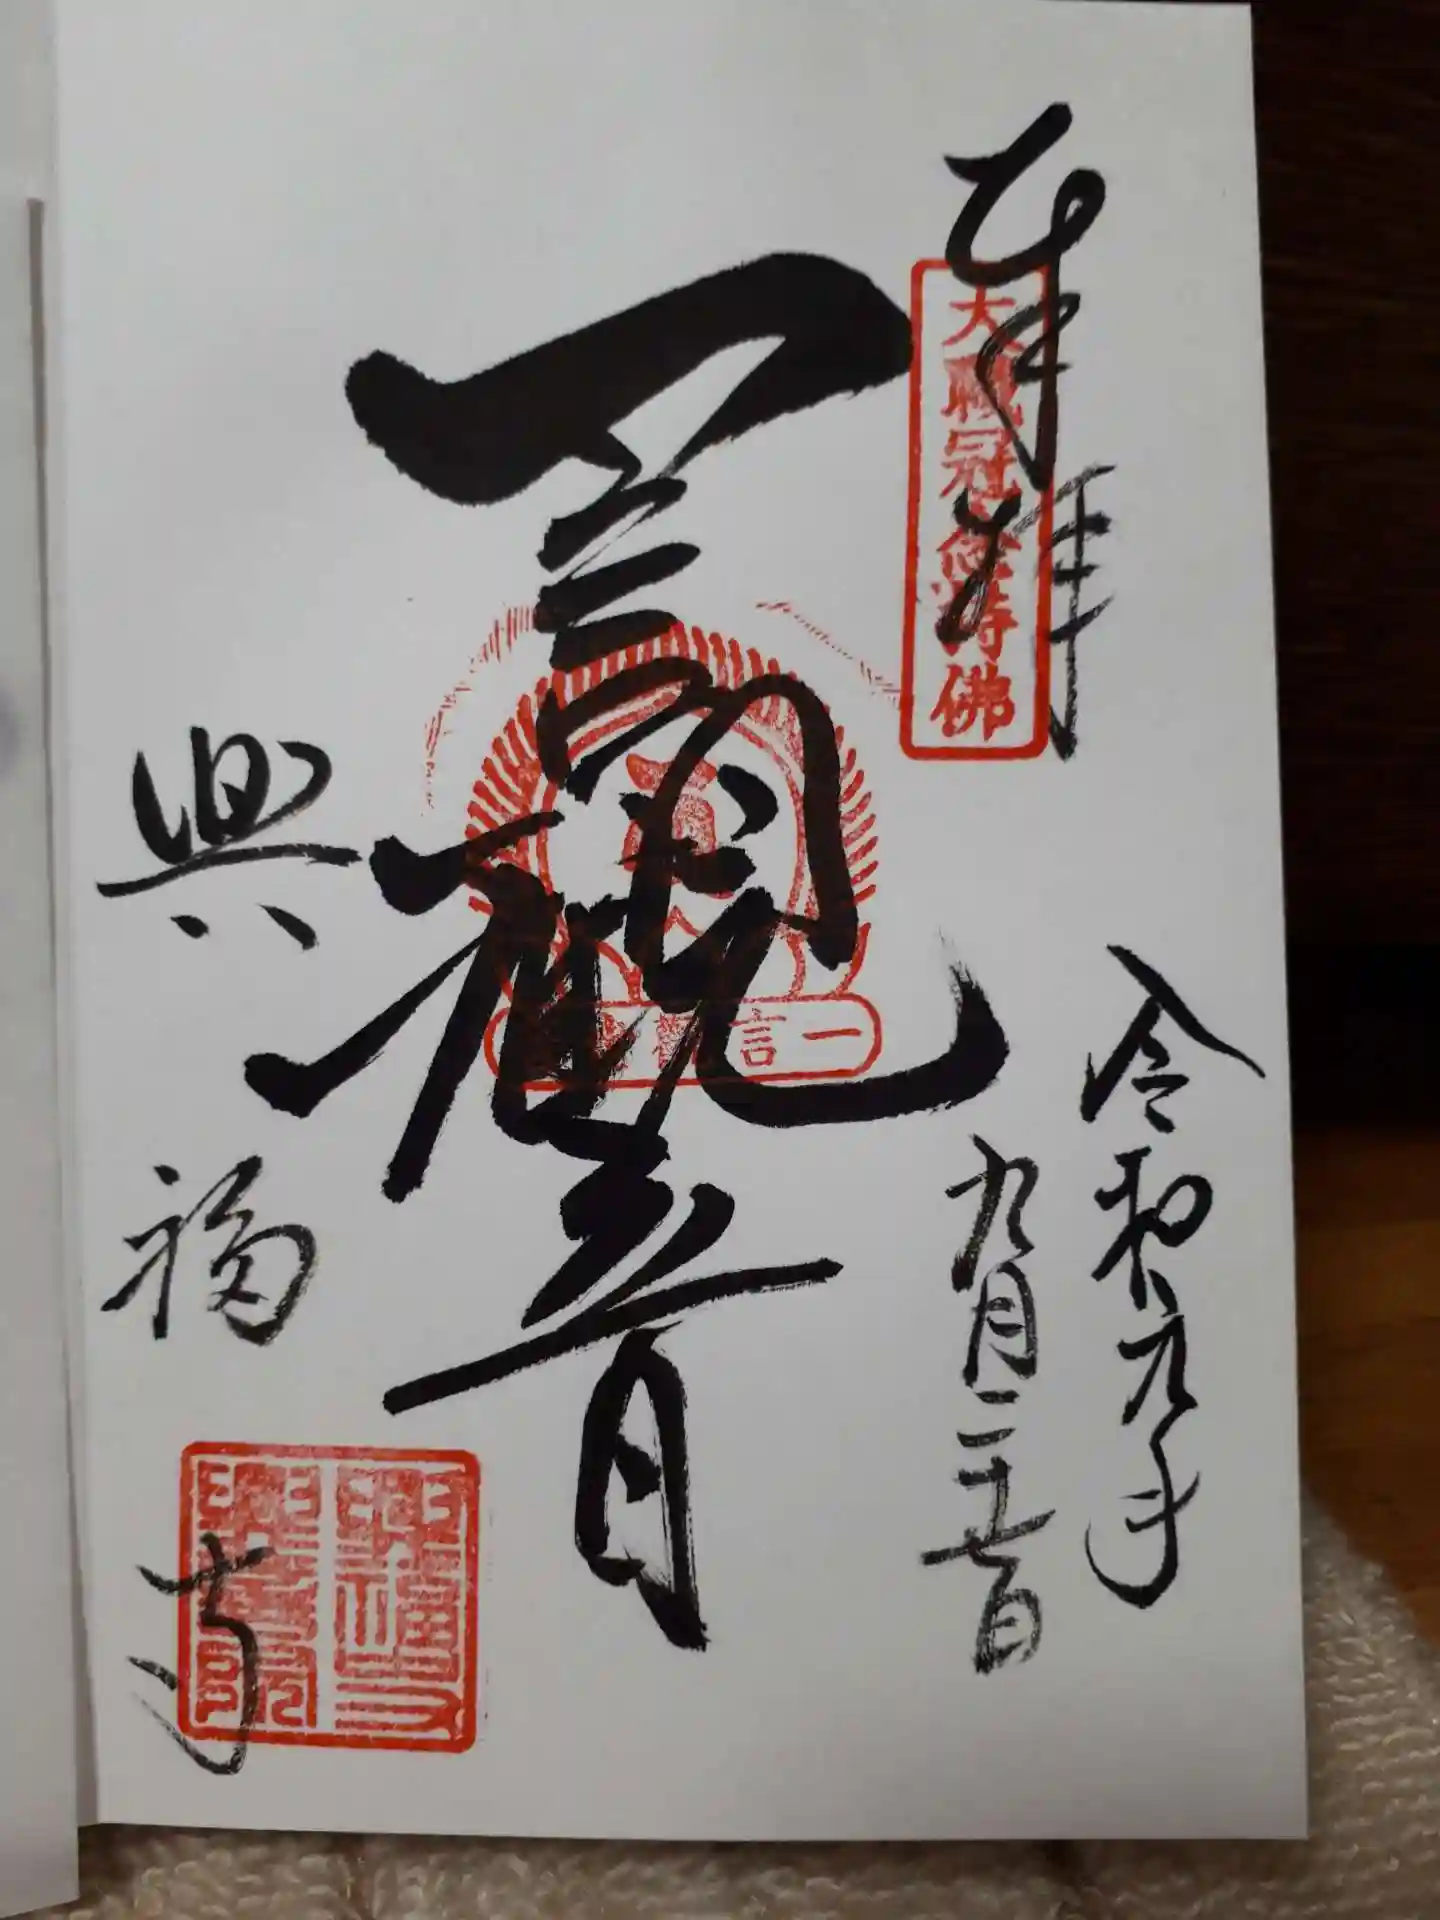 奉拝
大職冠念持佛
一言観音
一言觀音
令和元年
九月二十七日
興福寺